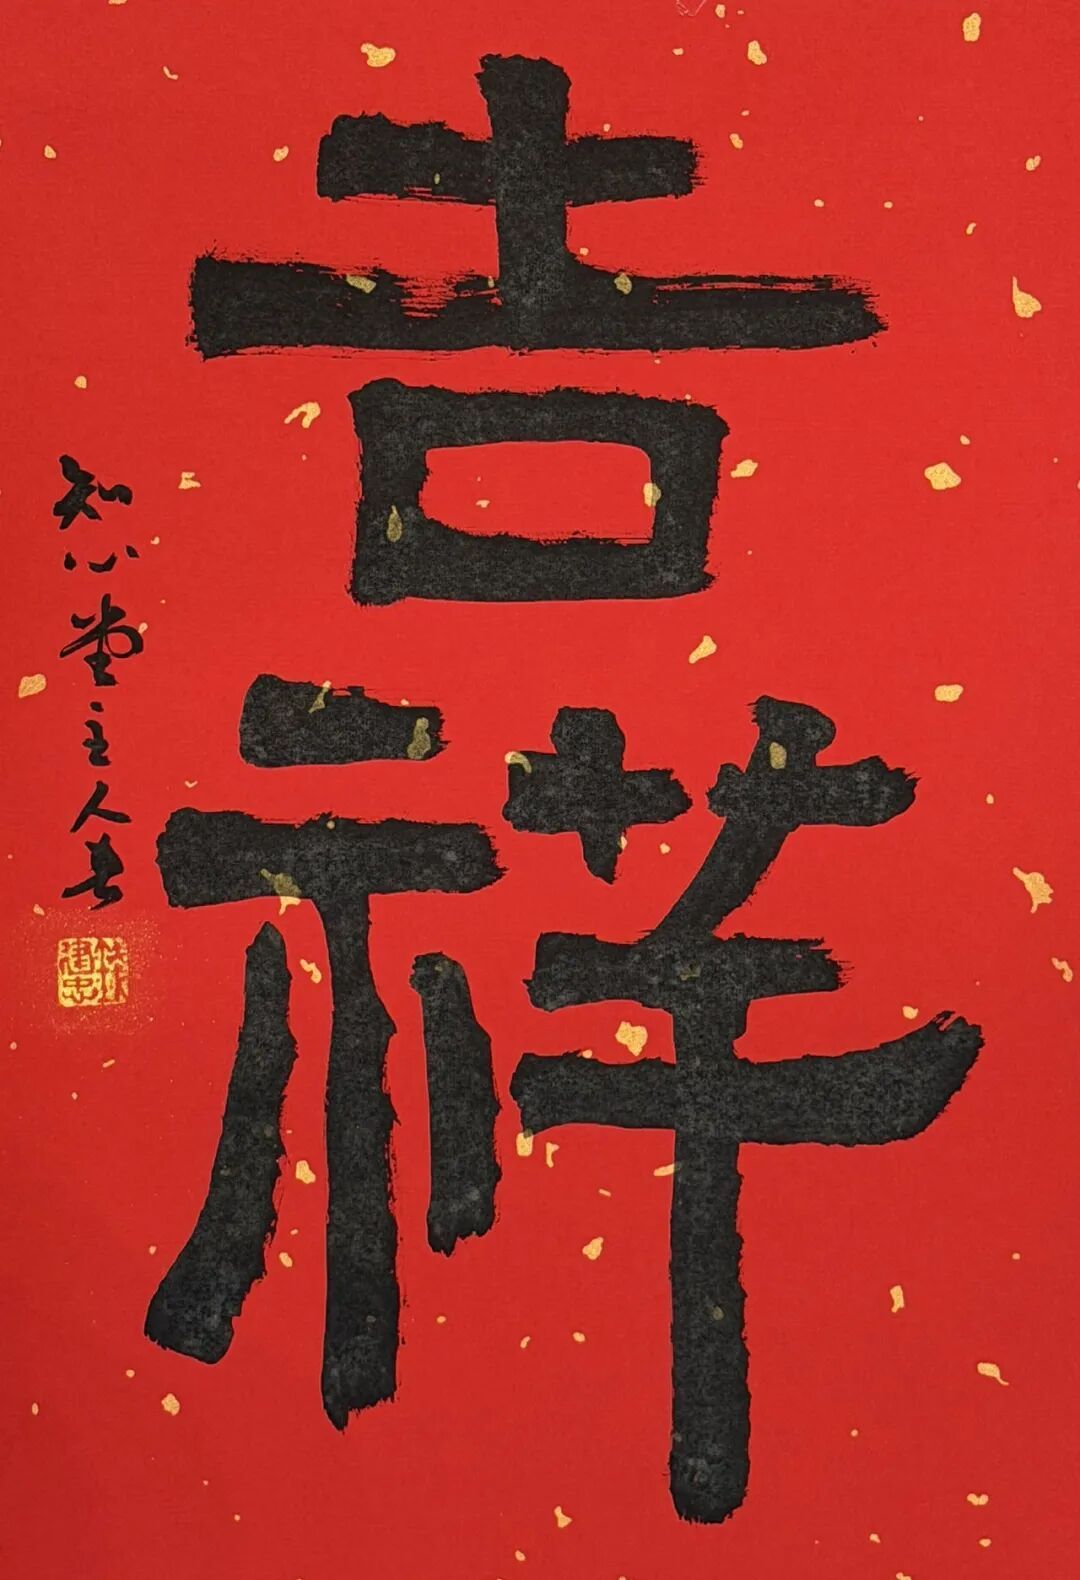 吉祥
知心堂主人书